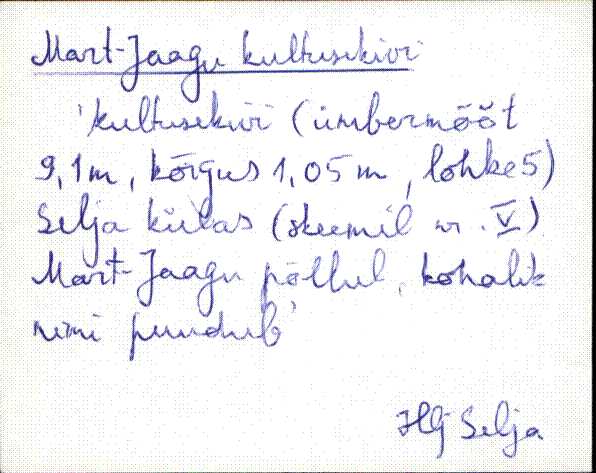 Mart-Jaagu kultusekivi
'kultusekivi (ümbermõõt
9,1m, kõrgus 1,05m, lohke 5)
Selja külas (skeemil nr. V)
Mart-Jaagu põllul, kohalik
nimi puudub'
Hlj Selja